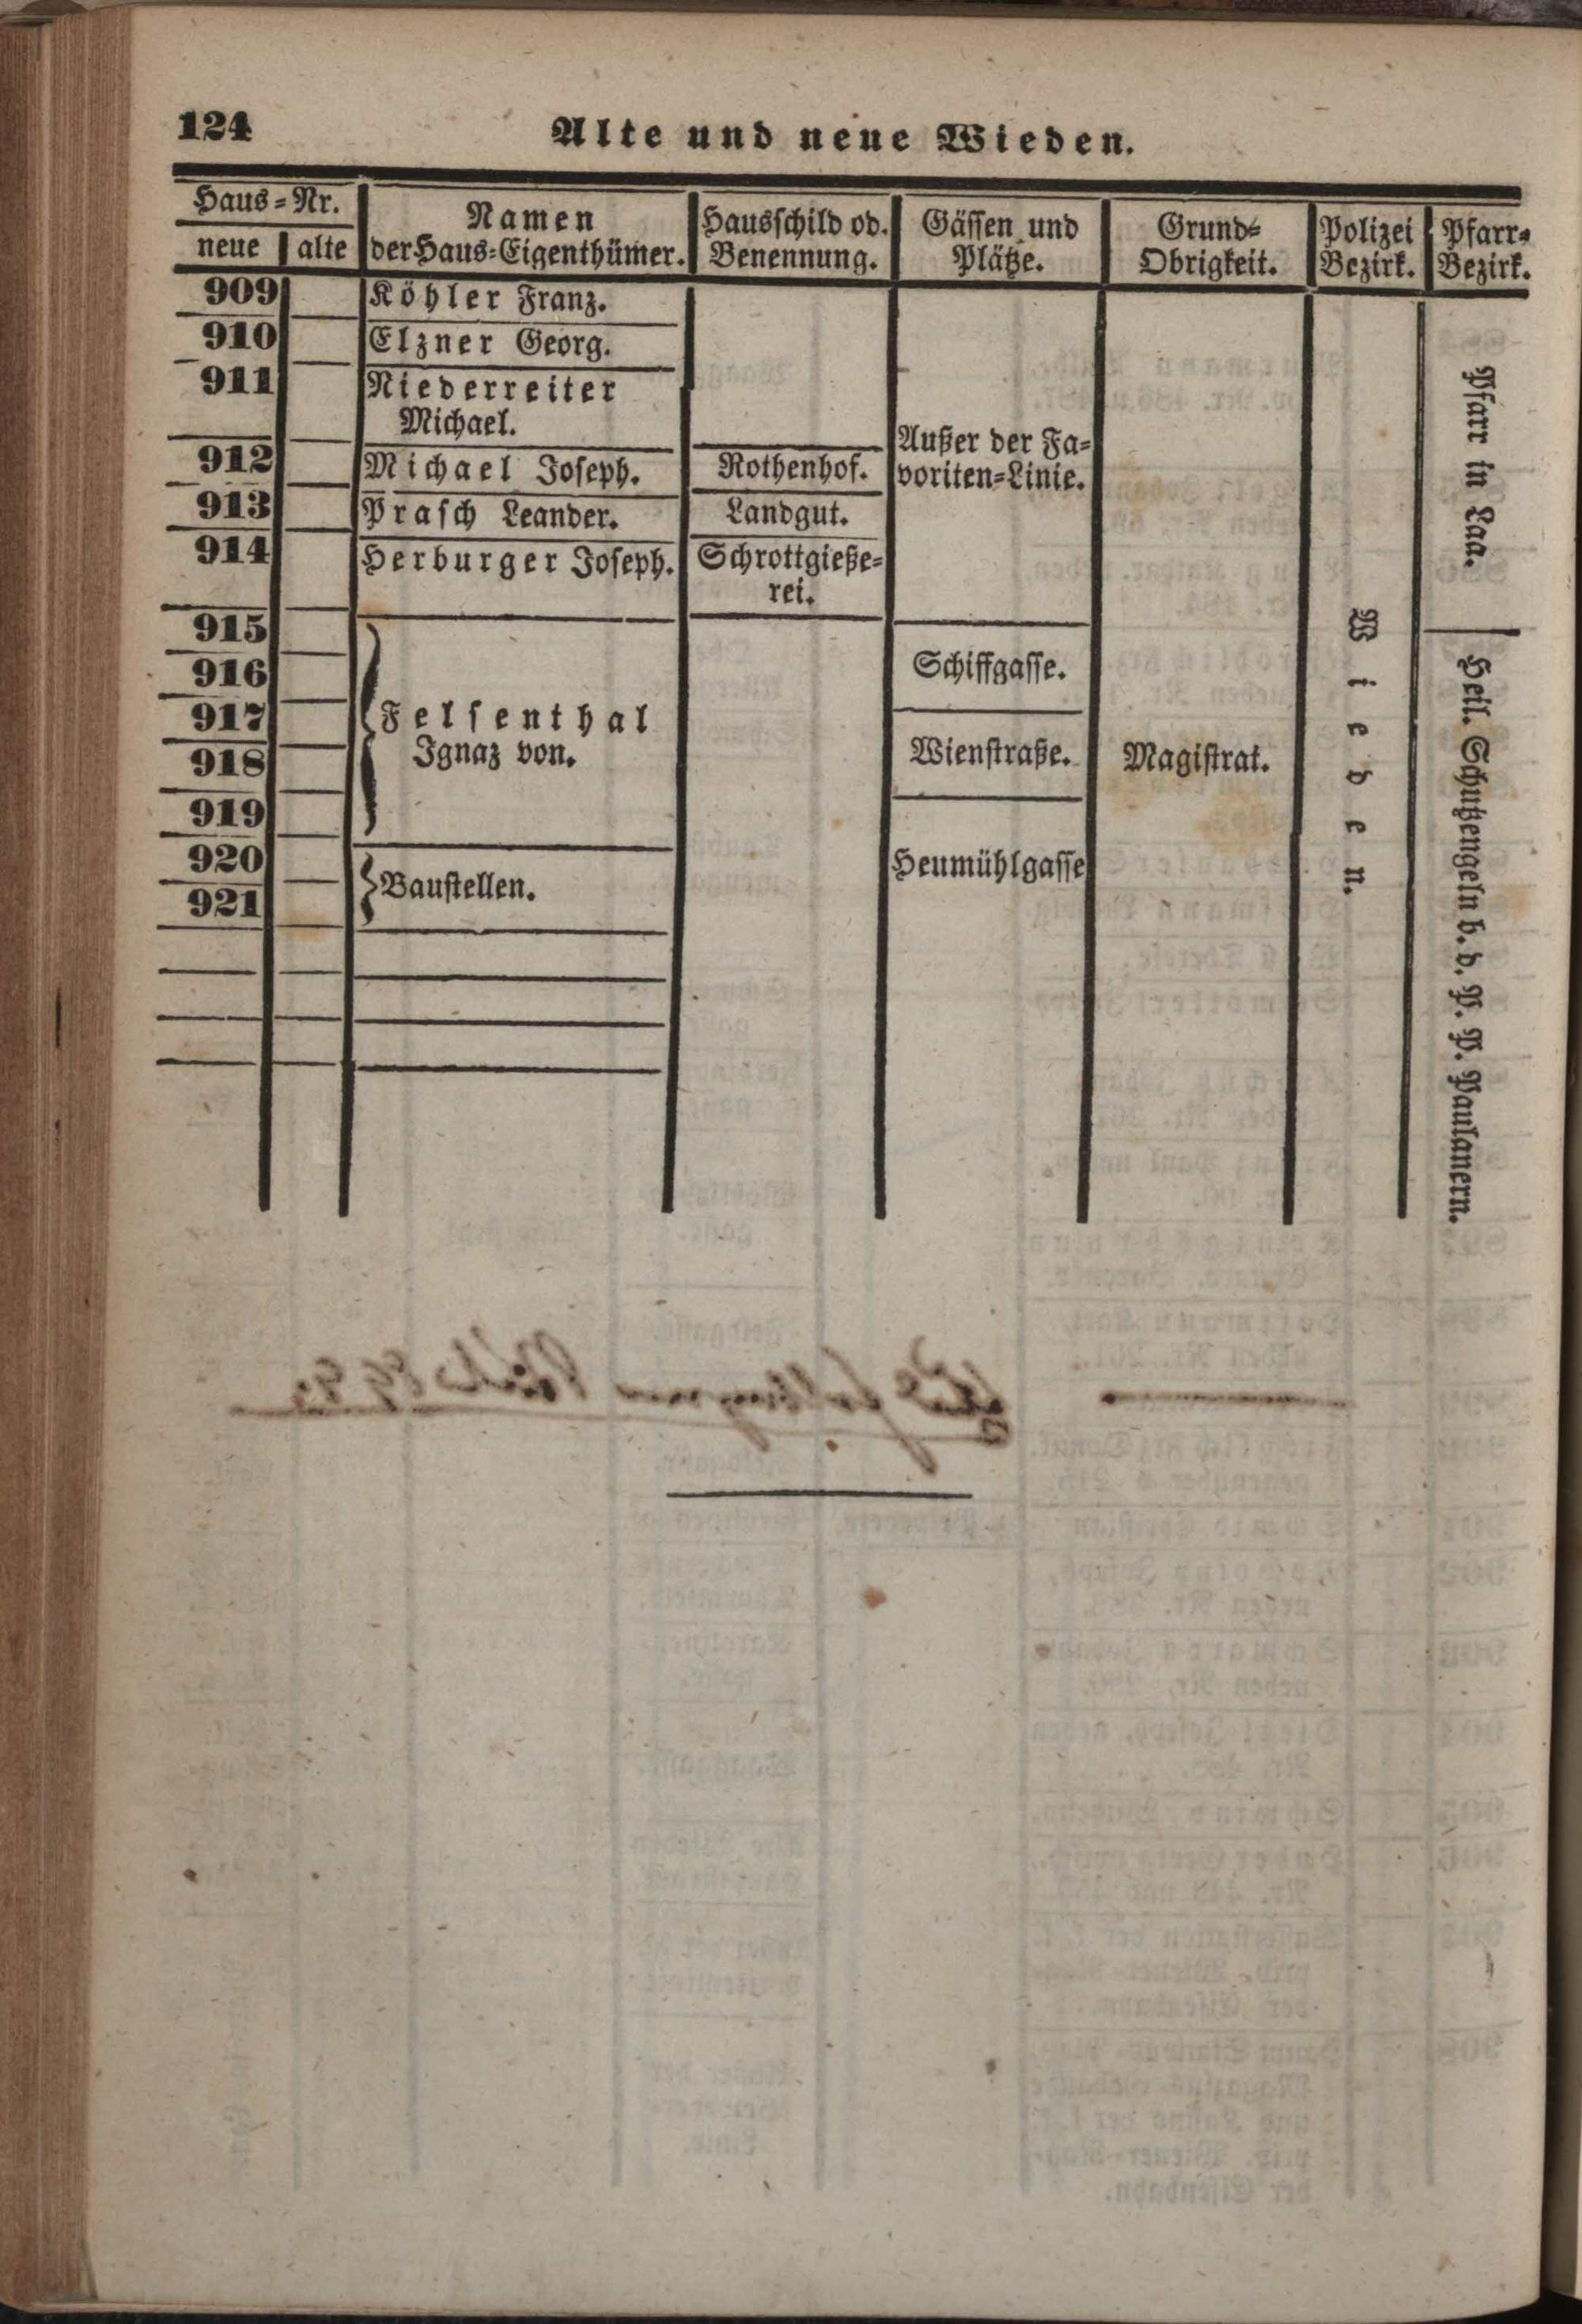 124
Alte und neue Wieden.
Haus-Nr.
neue alte
Namen
der Haus-Eigenthümer.
Hausschild od.
Benennung.
Gässen und
Plätze.
Grund-
Obrigkeit.
Polizei
Bezirk.
Pfarr-
Bezirk.
909 Köhler Franz.
910 Elzner Georg.
911 Niederreiter
Michael.
912 Michael Joseph. Rothenhof.
913 Prasch Leander. Landgut.
914 Herburger Joseph. Schrottgieße-
rei.
Außer der Fa-
voriten-Linie.
915
916
917
918
919
Felsenthal
Ignaz von.
920
921
Baustellen.
Schiffgasse.
Wienstraße.
Heumühlgasse
Magistrat.
Wieden.
Pfarr in Laa.
Heil. Schutzengeln b. d. P. P. Paulanern.